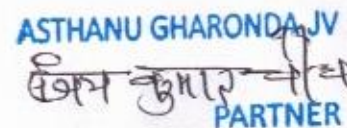 ASTHANU GHARONDA JV
कुमार
PARTNER